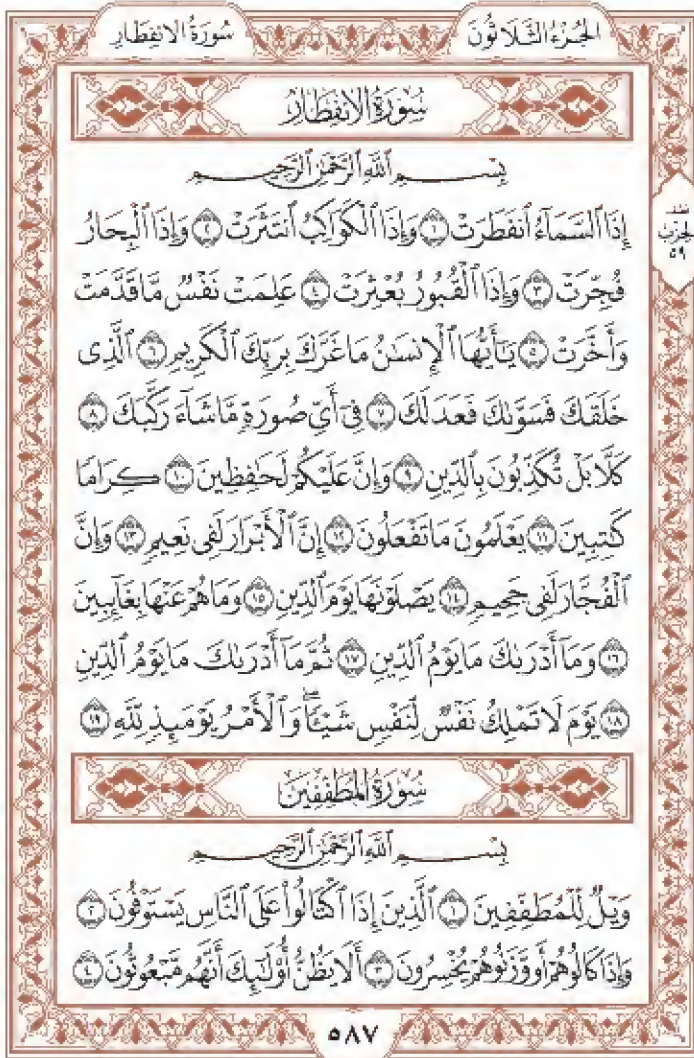 سُورَةُ الانفِطَارِ الجُزْءُ الثَّلَاثُونَ
سُورَةُ الانفِطَارِ
بِسْمِ ٱللَّهِ ٱلرَّحْمَٰنِ ٱلرَّحِيمِ
إِذَا ٱلسَّمَآءُ ٱنفَطَرَتْ ١ وَإِذَا ٱلْكَوَاكِبُ ٱنتَثَرَتْ ٢ وَإِذَا ٱلْبِحَارُ
فُجِّرَتْ ٣ وَإِذَا ٱلْقُبُورُ بُعْثِرَتْ ٤ عَلِمَتْ نَفْسٌ مَّا قَدَّمَتْ
وَأَخَّرَتْ ٥ يَٰٓأَيُّهَا ٱلْإِنسَٰنُ مَا غَرَّكَ بِرَبِّكَ ٱلْكَرِيمِ ٦ ٱلَّذِى
خَلَقَكَ فَسَوَّىٰكَ فَعَدَلَكَ ٧ فِىٓ أَىِّ صُورَةٍ مَّا شَآءَ رَكَّبَكَ ٨
كَلَّا بَلْ تُكَذِّبُونَ بِٱلدِّينِ ٩ وَإِنَّ عَلَيْكُمْ لَحَٰفِظِينَ ١٠ كِرَامًا
كَٰتِبِينَ ١١ يَعْلَمُونَ مَا تَفْعَلُونَ ١٢ إِنَّ ٱلْأَبْرَارَ لَفِى نَعِيمٍ ١٣ وَإِنَّ
ٱلْفُجَّارَ لَفِى جَحِيمٍ ١٤ يَصْلَوْنَهَا يَوْمَ ٱلدِّينِ ١٥ وَمَا هُمْ عَنْهَا بِغَآئِبِينَ
١٦ وَمَآ أَدْرَىٰكَ مَا يَوْمُ ٱلدِّينِ ١٧ ثُمَّ مَآ أَدْرَىٰكَ مَا يَوْمُ ٱلدِّينِ
١٨ يَوْمَ لَا تَمْلِكُ نَفْسٌ لِّنَفْسٍ شَيْـًٔا ۖ وَٱلْأَمْرُ يَوْمَئِذٍ لِّلَّهِ ١٩
سُورَةُ المُطَفِّفِينَ
بِسْمِ ٱللَّهِ ٱلرَّحْمَٰنِ ٱلرَّحِيمِ
وَيْلٌ لِّلْمُطَفِّفِينَ ١ ٱلَّذِينَ إِذَا ٱكْتَالُوا۟ عَلَى ٱلنَّاسِ يَسْتَوْفُونَ ٢
وَإِذَا كَالُوهُمْ أَو وَّزَنُوهُمْ يُخْسِرُونَ ٣ أَلَا يَظُنُّ أُو۟لَٰٓئِكَ أَنَّهُم مَّبْعُوثُونَ ٤
٥٨٧
الحزب
٥٩